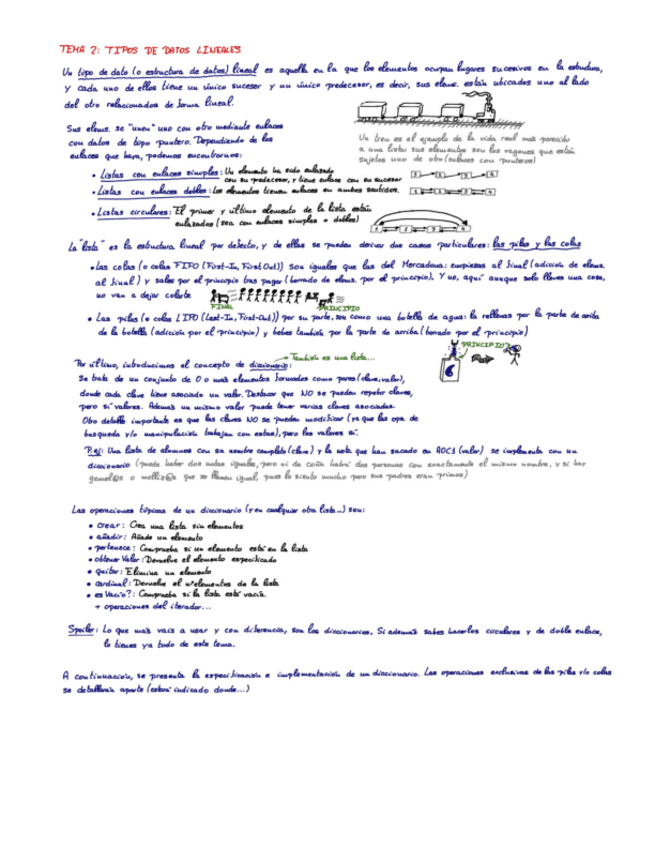 TEMA 2: TIPOS DE DATOS LINEALES
Un tipo de dato (o estructura de datos) lineal es aquella en la que los elementos ocupan lugares sucesivos en la estructura,
y cada uno de ellos tiene un único sucesor y un único predecesor, es decir, sus elems. están ubicados uno al lado
del otro relacionados de forma lineal.
Sus elems. se "unen" uno con otro mediante enlaces
con datos de tipo puntero. Dependiendo de los
enlaces que haya, podemos encontrarnos:
Un tren es el ejemplo de la vida real más parecido
a una lista: sus elementos son los vagones que están
sujetos uno de otro (enlaces con punteros)
• Listas con enlaces simples: Un elemento ha sido enlazado
con su predecesor, y tiene enlace con su sucesor
• Listas con enlaces dobles: Los elementos tienen enlaces en ambos sentidos.
• Listas circulares: El primer y último elemento de la lista están
enlazados (sea con enlaces simples o dobles)
La "lista" es la estructura lineal por defecto, y de ellas se pueden derivar dos casos particulares: las pilas y las colas
• Las colas (o colas FIFO (First-In, First Out)) son iguales que las del Mercadona: empiezas al final (adición de elems.
al final) y sales por el principio tras pagar (borrado de elems. por el principio). Y no, aquí aunque solo lleves una cosa,
no van a dejar colarte
FINAL PRINCIPIO
• Las pilas (o colas LIFO (Last-In, First-Out)) por su parte, son como una botella de agua: la rellenas por la parte de arriba
de la botella (adición por el principio) y bebes también por la parte de arriba (borrado por el principio)
PRINCIPIO
También es una lista...
Por último, introducimos el concepto de diccionario:
Se trata de un conjunto de 0 o más elementos formados como pares (clave, valor),
donde cada clave tiene asociado un valor. Destacar que NO se pueden repetir claves,
pero sí valores. Además un mismo valor puede tener varias claves asociadas.
Otro detalle importante es que las claves NO se pueden modificar (ya que las ops de
busqueda y/o manipulación trabajan con estas), pero los valores sí.
P.ej: Una lista de alumnos con su nombre completo (clave) y la nota que han sacado en AOC1 (valor) se implementa con un
diccionario (puede haber dos notas iguales, pero ni de coña habrá dos personas con exactamente el mismo nombre, y si hay
gemel@s o melliz@s que se llamen igual, pues lo siento mucho pero sus padres eran primos)
Las operaciones típicas de un diccionario (y en cualquier otra lista...) son:
• crear: Crea una lista sin elementos
• añadir: Añade un elemento
• pertenece: Comprueba si un elemento está en la lista
• obtenerValor: Devuelve el elemento especificado
• quitar: Elimina un elemento
• cardinal: Devuelve el nº elementos de la lista
• esVacio?: Comprueba si la lista está vacía.
+ operaciones del iterador...
Spoiler: Lo que más vais a usar y con diferencia, son los diccionarios. Si además sabes hacerlos circulares y de doble enlace,
lo tienes ya todo de este tema.
A continuación, se presenta la especificación e implementación de un diccionario. Las operaciones exclusivas de las pilas y/o colas
se detallarán aparte (estará indicado donde...)